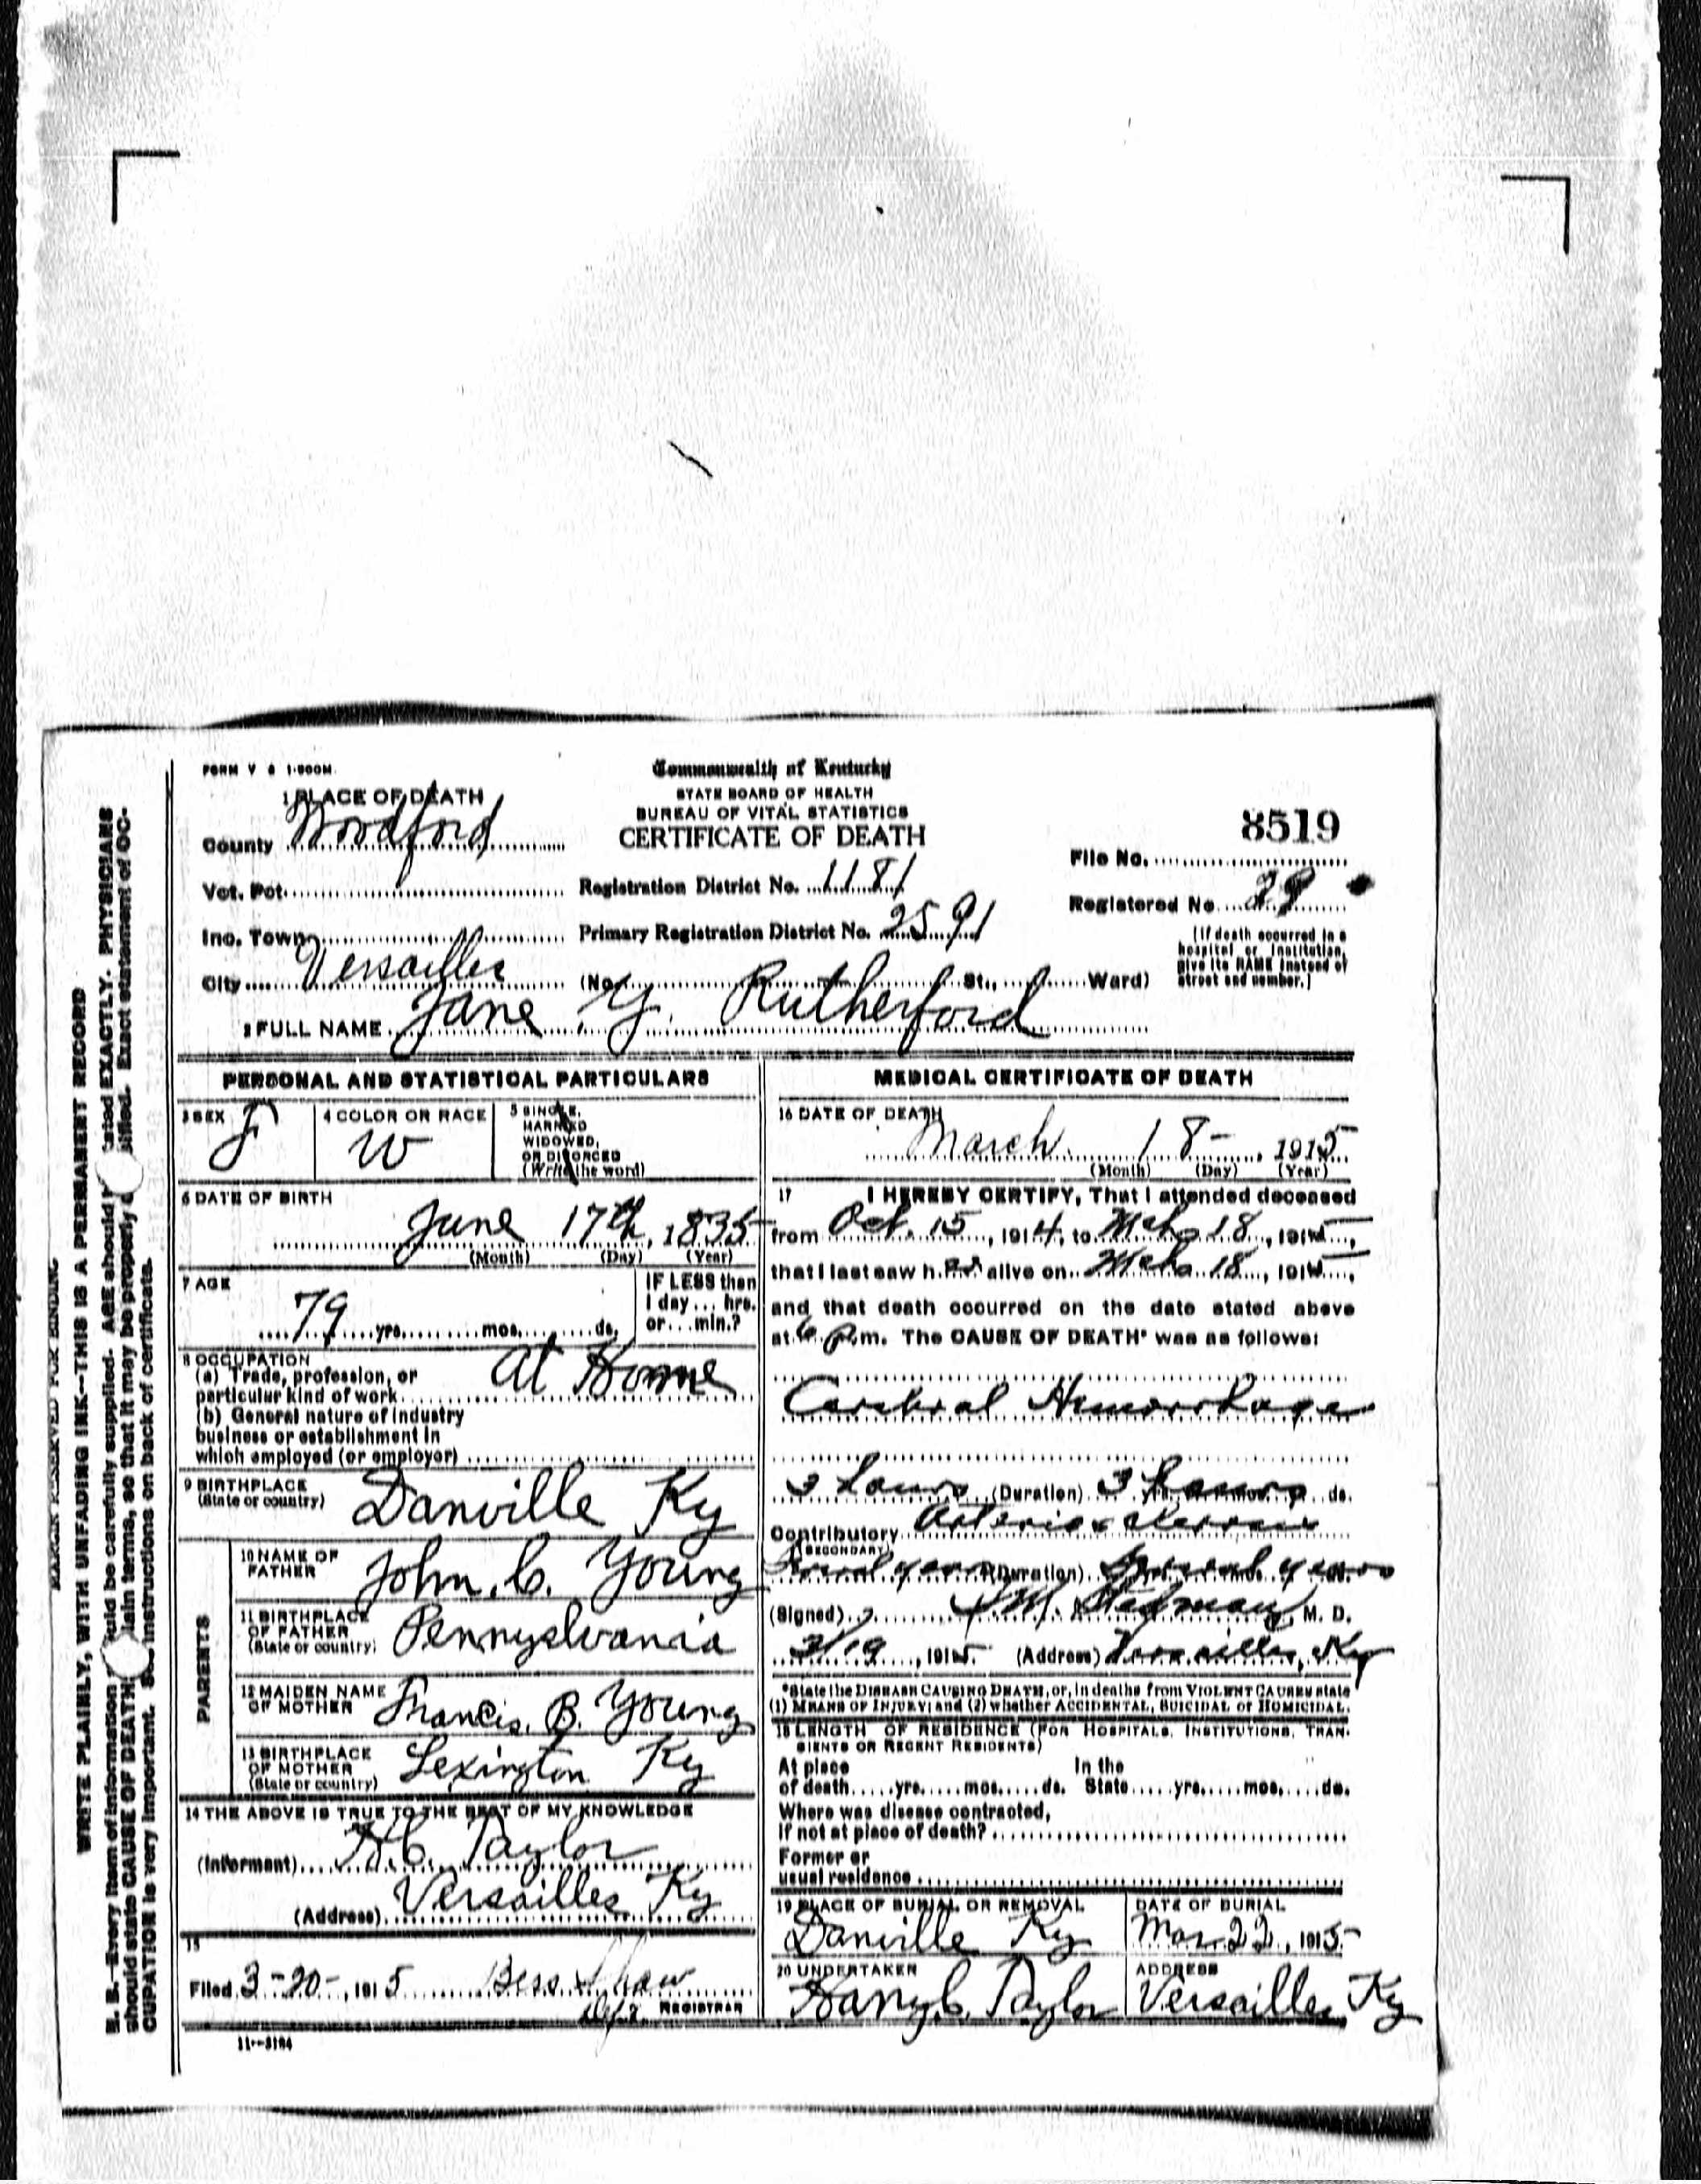 FORM V S 1-500M
Commonwealth of Kentucky
STATE BOARD OF HEALTH
BUREAU OF VITAL STATISTICS
CERTIFICATE OF DEATH
1 PLACE OF DEATH
County Woodford
Vot. Pct.
Inc. Town
City Versailles
Registration District No. 1181
Primary Registration District No. 2591
(No. St., Ward)
8519
File No.
Registered No. 29
[If death occurred in a
hospital or institution,
give its NAME instead of
street and number.]
2 FULL NAME Jane Y. Rutherford
PERSONAL AND STATISTICAL PARTICULARS
3 SEX F
4 COLOR OR RACE W
5 SINGLE,
MARRIED
WIDOWED,
OR DIVORCED
(Write the word)
6 DATE OF BIRTH
June 17th, 1835
(Month) (Day) (Year)
7 AGE
79 yrs. mos. ds.
IF LESS than
1 day... hrs.
or... min.?
8 OCCUPATION
(a) Trade, profession, or
particular kind of work At Home
(b) General nature of industry
business or establishment in
which employed (or employer)
9 BIRTHPLACE
(State or country) Danville Ky
PARENTS
10 NAME OF
FATHER John. C. Young
11 BIRTHPLACE
OF FATHER
(State or country) Pennyslvania
12 MAIDEN NAME
OF MOTHER Francis. B. Young
13 BIRTHPLACE
OF MOTHER
(State or country) Lexington Ky
14 THE ABOVE IS TRUE TO THE BEST OF MY KNOWLEDGE
(Informant) H.C. Taylor
(Address) Versailles Ky
15
Filed 3-20-, 1915 Bess Shaw
REGISTRAR
11--3184
MEDICAL CERTIFICATE OF DEATH
16 DATE OF DEATH
March 18-, 1915
(Month) (Day) (Year)
17 I HEREBY CERTIFY, That I attended deceased
from Oct. 15, 1914, to Mch 18, 1915,
that I last saw h er alive on Mch 18, 1915,
and that death occurred on the date stated above
at 6 P.m. The CAUSE OF DEATH* was as follows:
Cerebral Hemorrhage
3 hours (Duration) 3 hours ds.
Contributory Arterio sclerosis
(SECONDARY)
Several years (Duration) Several years
(Signed) Stedman, M. D.
3/19, 1915 (Address) Versailles, Ky
*State the DISEASE CAUSING DEATH, or, in deaths from VIOLENT CAUSES state
(1) MEANS OF INJURY; and (2) whether ACCIDENTAL, SUICIDAL or HOMICIDAL.
18 LENGTH OF RESIDENCE (FOR HOSPITALS, INSTITUTIONS, TRAN-
SIENTS OR RECENT RESIDENTS)
At place In the
of death.....yrs.....mos.....ds. State.....yrs.....mos.....ds.
Where was disease contracted,
if not at place of death?
Former or
usual residence
19 PLACE OF BURIAL OR REMOVAL
Danville Ky
DATE OF BURIAL
Mar. 22, 1915
20 UNDERTAKER
Harry C. Taylor
ADDRESS
Versailles Ky
MARGIN RESERVED FOR BINDING
WRITE PLAINLY, WITH UNFADING INK--THIS IS A PERMANENT RECORD
N. B.--Every item of information should be carefully supplied. AGE should stated EXACTLY. PHYSICIANS
should state CAUSE OF DEATH plain terms, so that it may be properly classified. Exact statement of OC-
CUPATION is very important. See instructions on back of certificate.